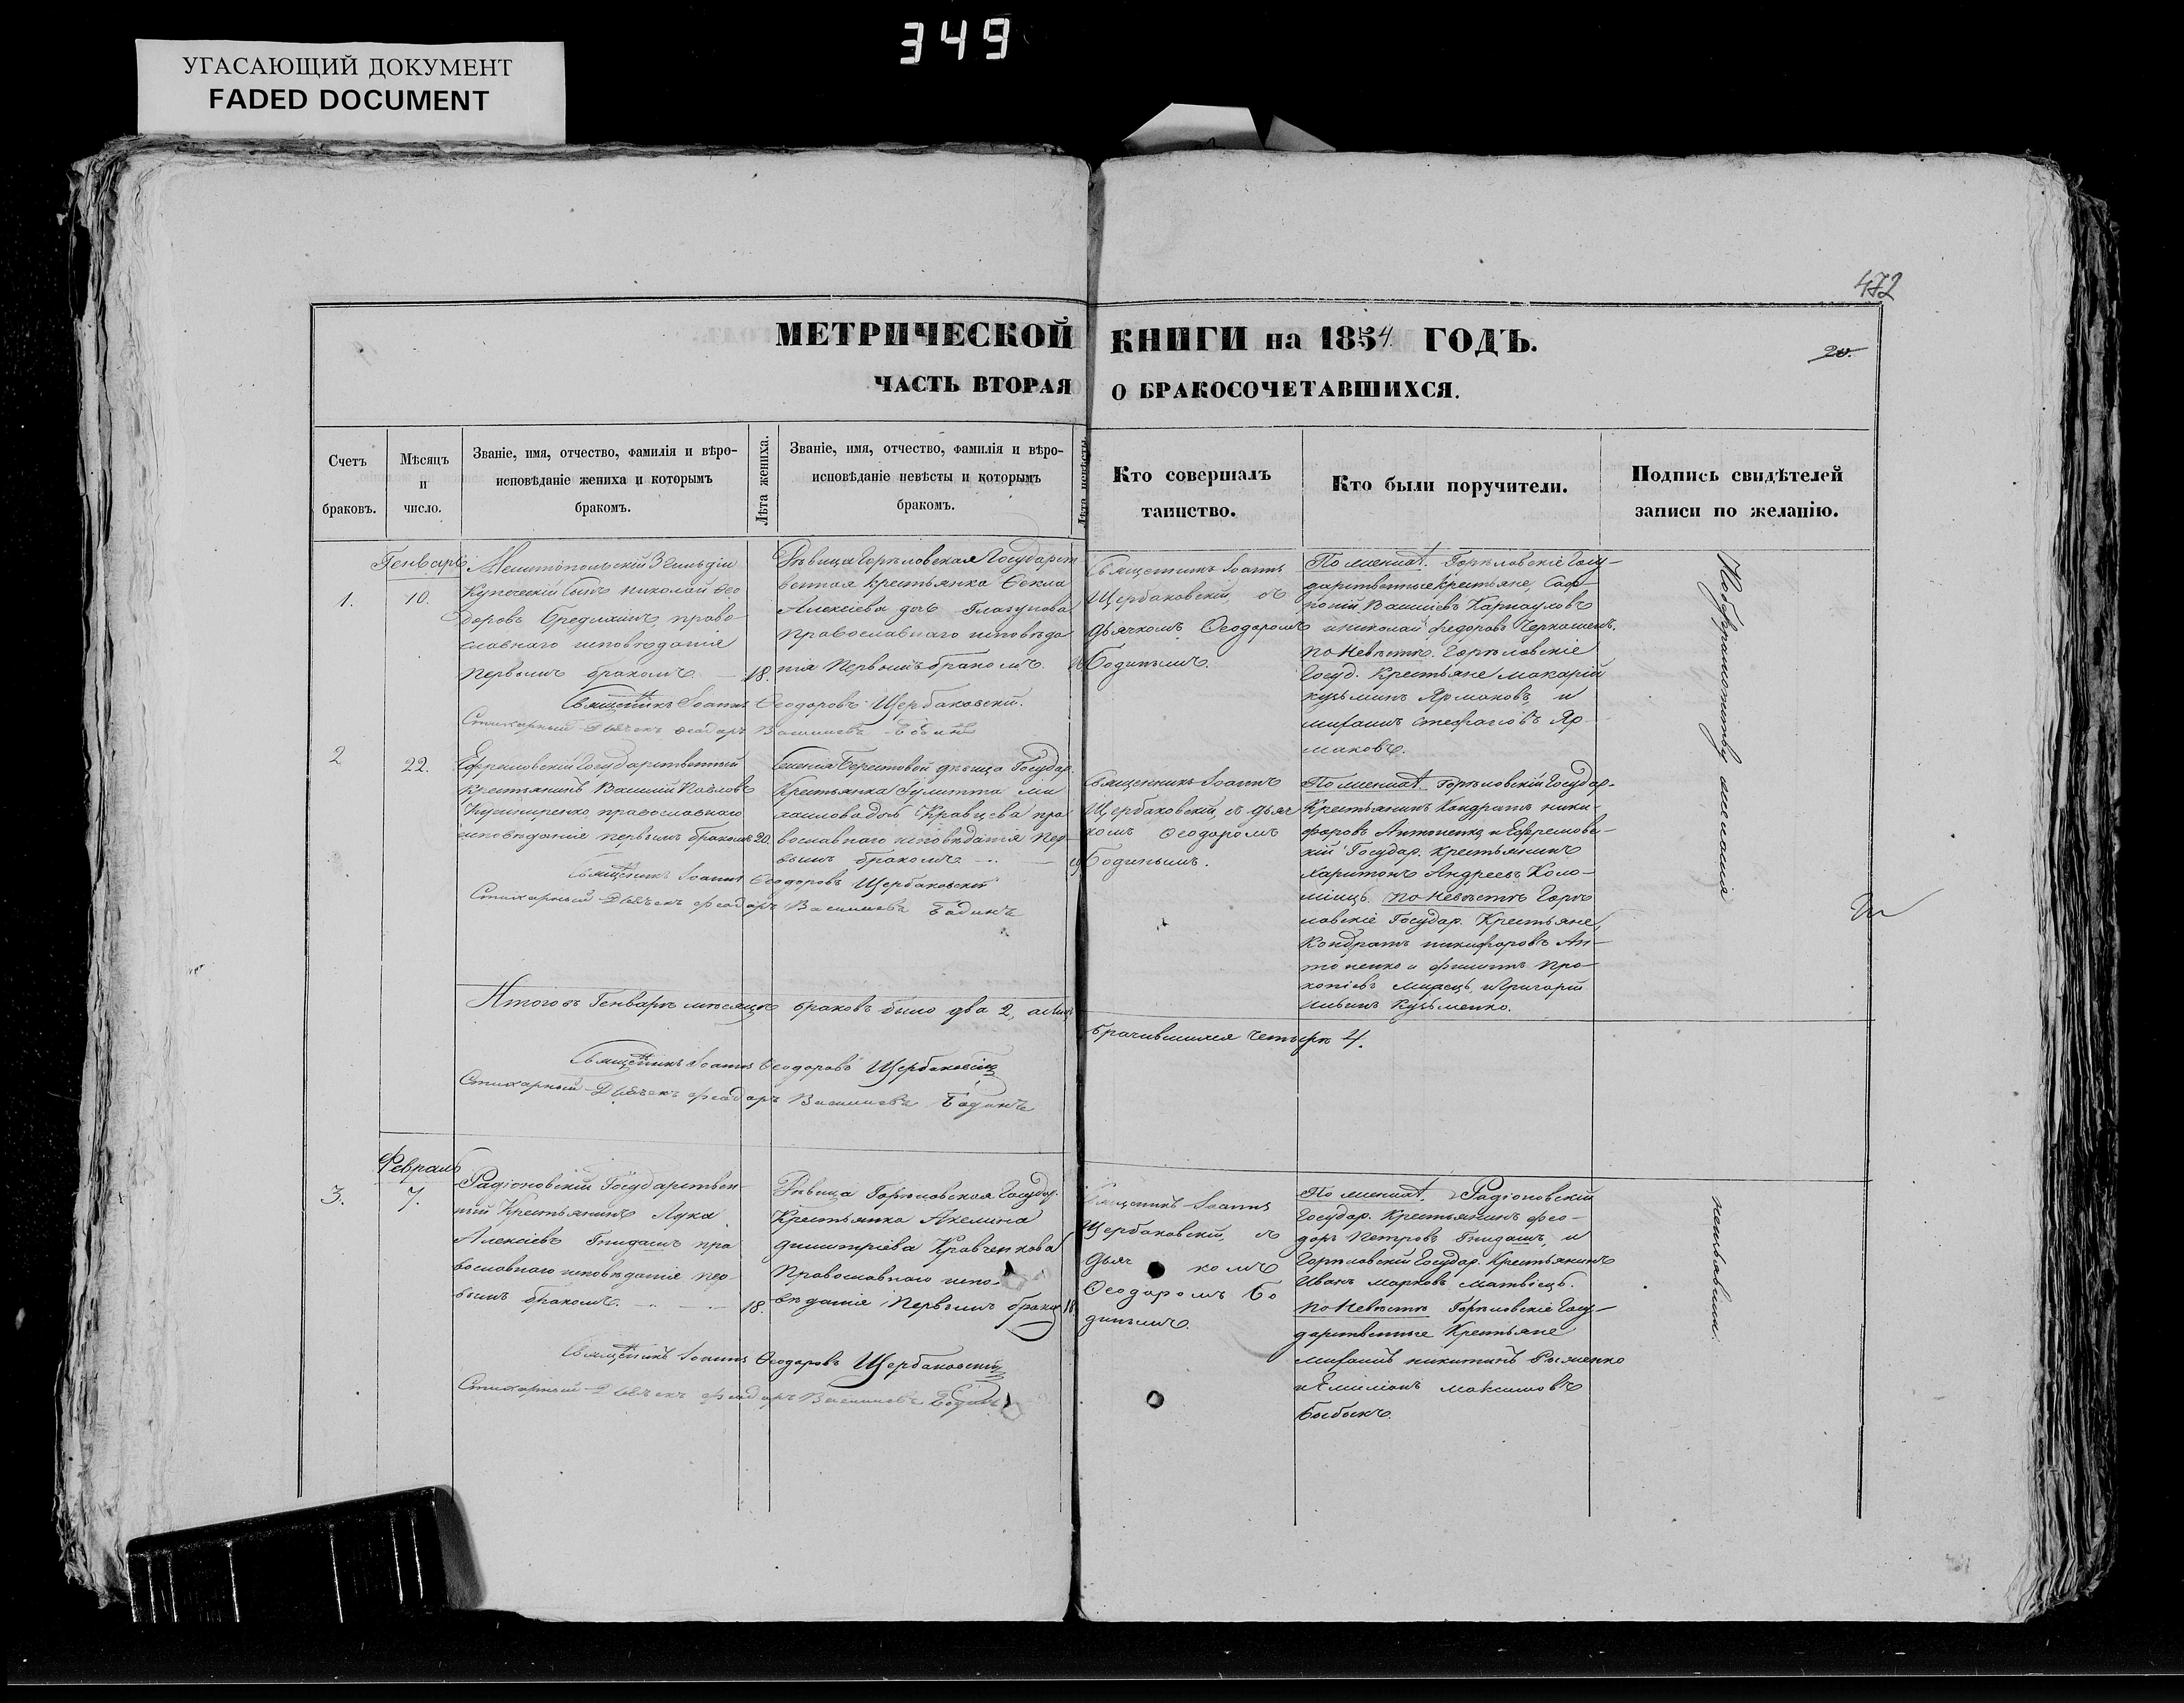 349
УГАСАЮЩИЙ ДОКУМЕНТ
FADED DOCUMENT
472
МЕТРИЧЕСКОЙ КНИГИ на 1854 ГОДЪ.
20.
ЧАСТЬ ВТОРАЯ О БРАКОСОЧЕТАВШИХСЯ.
Счетъ
браковъ.
Мѣсяцъ
и
число.
Званіе, имя, отчество, фамилія и вѣро-
исповѣданіе жениха и которымъ
бракомъ.
Лѣта жениха.
Званіе, имя, отчество, фамилія и вѣро-
исповѣданіе невѣсты и которымъ
бракомъ.
Лѣта невѣсты.
Кто совершалъ
таинство.
Кто были поручители.
Подпись свидѣтелей
записи по желанію.
Генварь
1.
10.
Мелитопольскій 3 гильдіи
Купеческій Сынъ Николай Ѳео
доровъ право
славнаго исповѣданія
первымъ бракомъ
18.
Дѣвица Горѣловская Государст
венная крестьянка Ѳекла
Алексіева дочь Глазунова
православнаго исповѣда
нія Первымъ бракомъ
Священникъ Іоаннъ
Щербаковскій, съ
дьячкомъ Ѳеодоромъ
Бодинымъ.
По женихѣ. Горѣловскіе Госу-
дарственные крестьяне, Соф-
роній Василіевъ Карнауховъ
и николай федоровъ
по Невѣстѣ. Горѣловскіе
Госуд. Крестьяне Макарій
кузьминъ Ярмаковъ, и
михаилъ Яр-
маковъ.
Священникъ Іоаннъ Ѳеодоровъ Щербаковскій.
Стихарный Дьячекъ Ѳеодоръ Василиевъ Бодинъ
2
22.
Ефремовскій Государственный
крестьянинъ Василій Павловъ
православнаго
исповѣданія первымъ бракомъ
20.
Селенія Берестовой дѣвица Государ.
Крестьянка Іулитта Ми
хаилова дочь Кравцева пра
вославнаго исповѣданія Пер-
вымъ бракомъ
19
Священникъ Іоаннъ
Щербаковскій, съ дьяч
комъ Ѳеодоромъ
Бодинымъ.
По женихѣ. Горѣловскій Государ.
Крестьянинъ Кондратъ ники-
форовъ Антоненко, и Ефремовс-
кій Государ. крестьянинъ
Харитонъ Андреевъ Коло-
міецъ. по Невѣстѣ Горѣ
ловскіе Государ. Крестьяне,
Кондратъ никифоровъ Ан-
тоненко и филиппъ Про-
копіевъ и Григорій
Ильинъ Кузьменко.
Священникъ Іоаннъ Ѳеодоровъ Щербаковскій
Стихарный Дьячекъ Ѳеодоръ Василиевъ Бодинъ
Итого въ Генварѣ мѣсяцѣ браковъ было два 2,
брачившихся четыре 4.
Священникъ Іоаннъ Ѳеодоровъ Щербаковскій
Стихарный Дьячекъ Ѳеодоръ Василиевъ Бодинъ
Февраль
3.
7.
Радіоновскій Государствен-
ный Крестьянинъ Лука
Алексіевъ Гнидашъ пра
вославнаго исповѣданія пер-
вымъ бракомъ.
18.
Дѣвица Горѣловская Государ.
Крестьянка Акелина
димитріева Кравченкова
Православнаго испо-
вѣданія Первымъ бракомъ
18
Священникъ Іоаннъ
Щербаковскій, съ
дьяч комъ
Ѳеодоромъ Бо
динымъ.
По женихѣ. Радіоновскій
Государ. Крестьянинъ фео-
доръ Петровъ Гнидашъ, и
Горѣловскій Государ. Крестьянинъ
Иванъ Марковъ Матвіецъ.
по Невѣстѣ Горѣловскіе Госу-
дарственные Крестьяне
михаилъ никитинъ
и Емиліанъ максимовъ
Бобокъ.
Священникъ Іоаннъ Ѳеодоровъ Щербаковскій
Стихарный Дьячекъ Ѳеодоръ Василиевъ Бодинъ